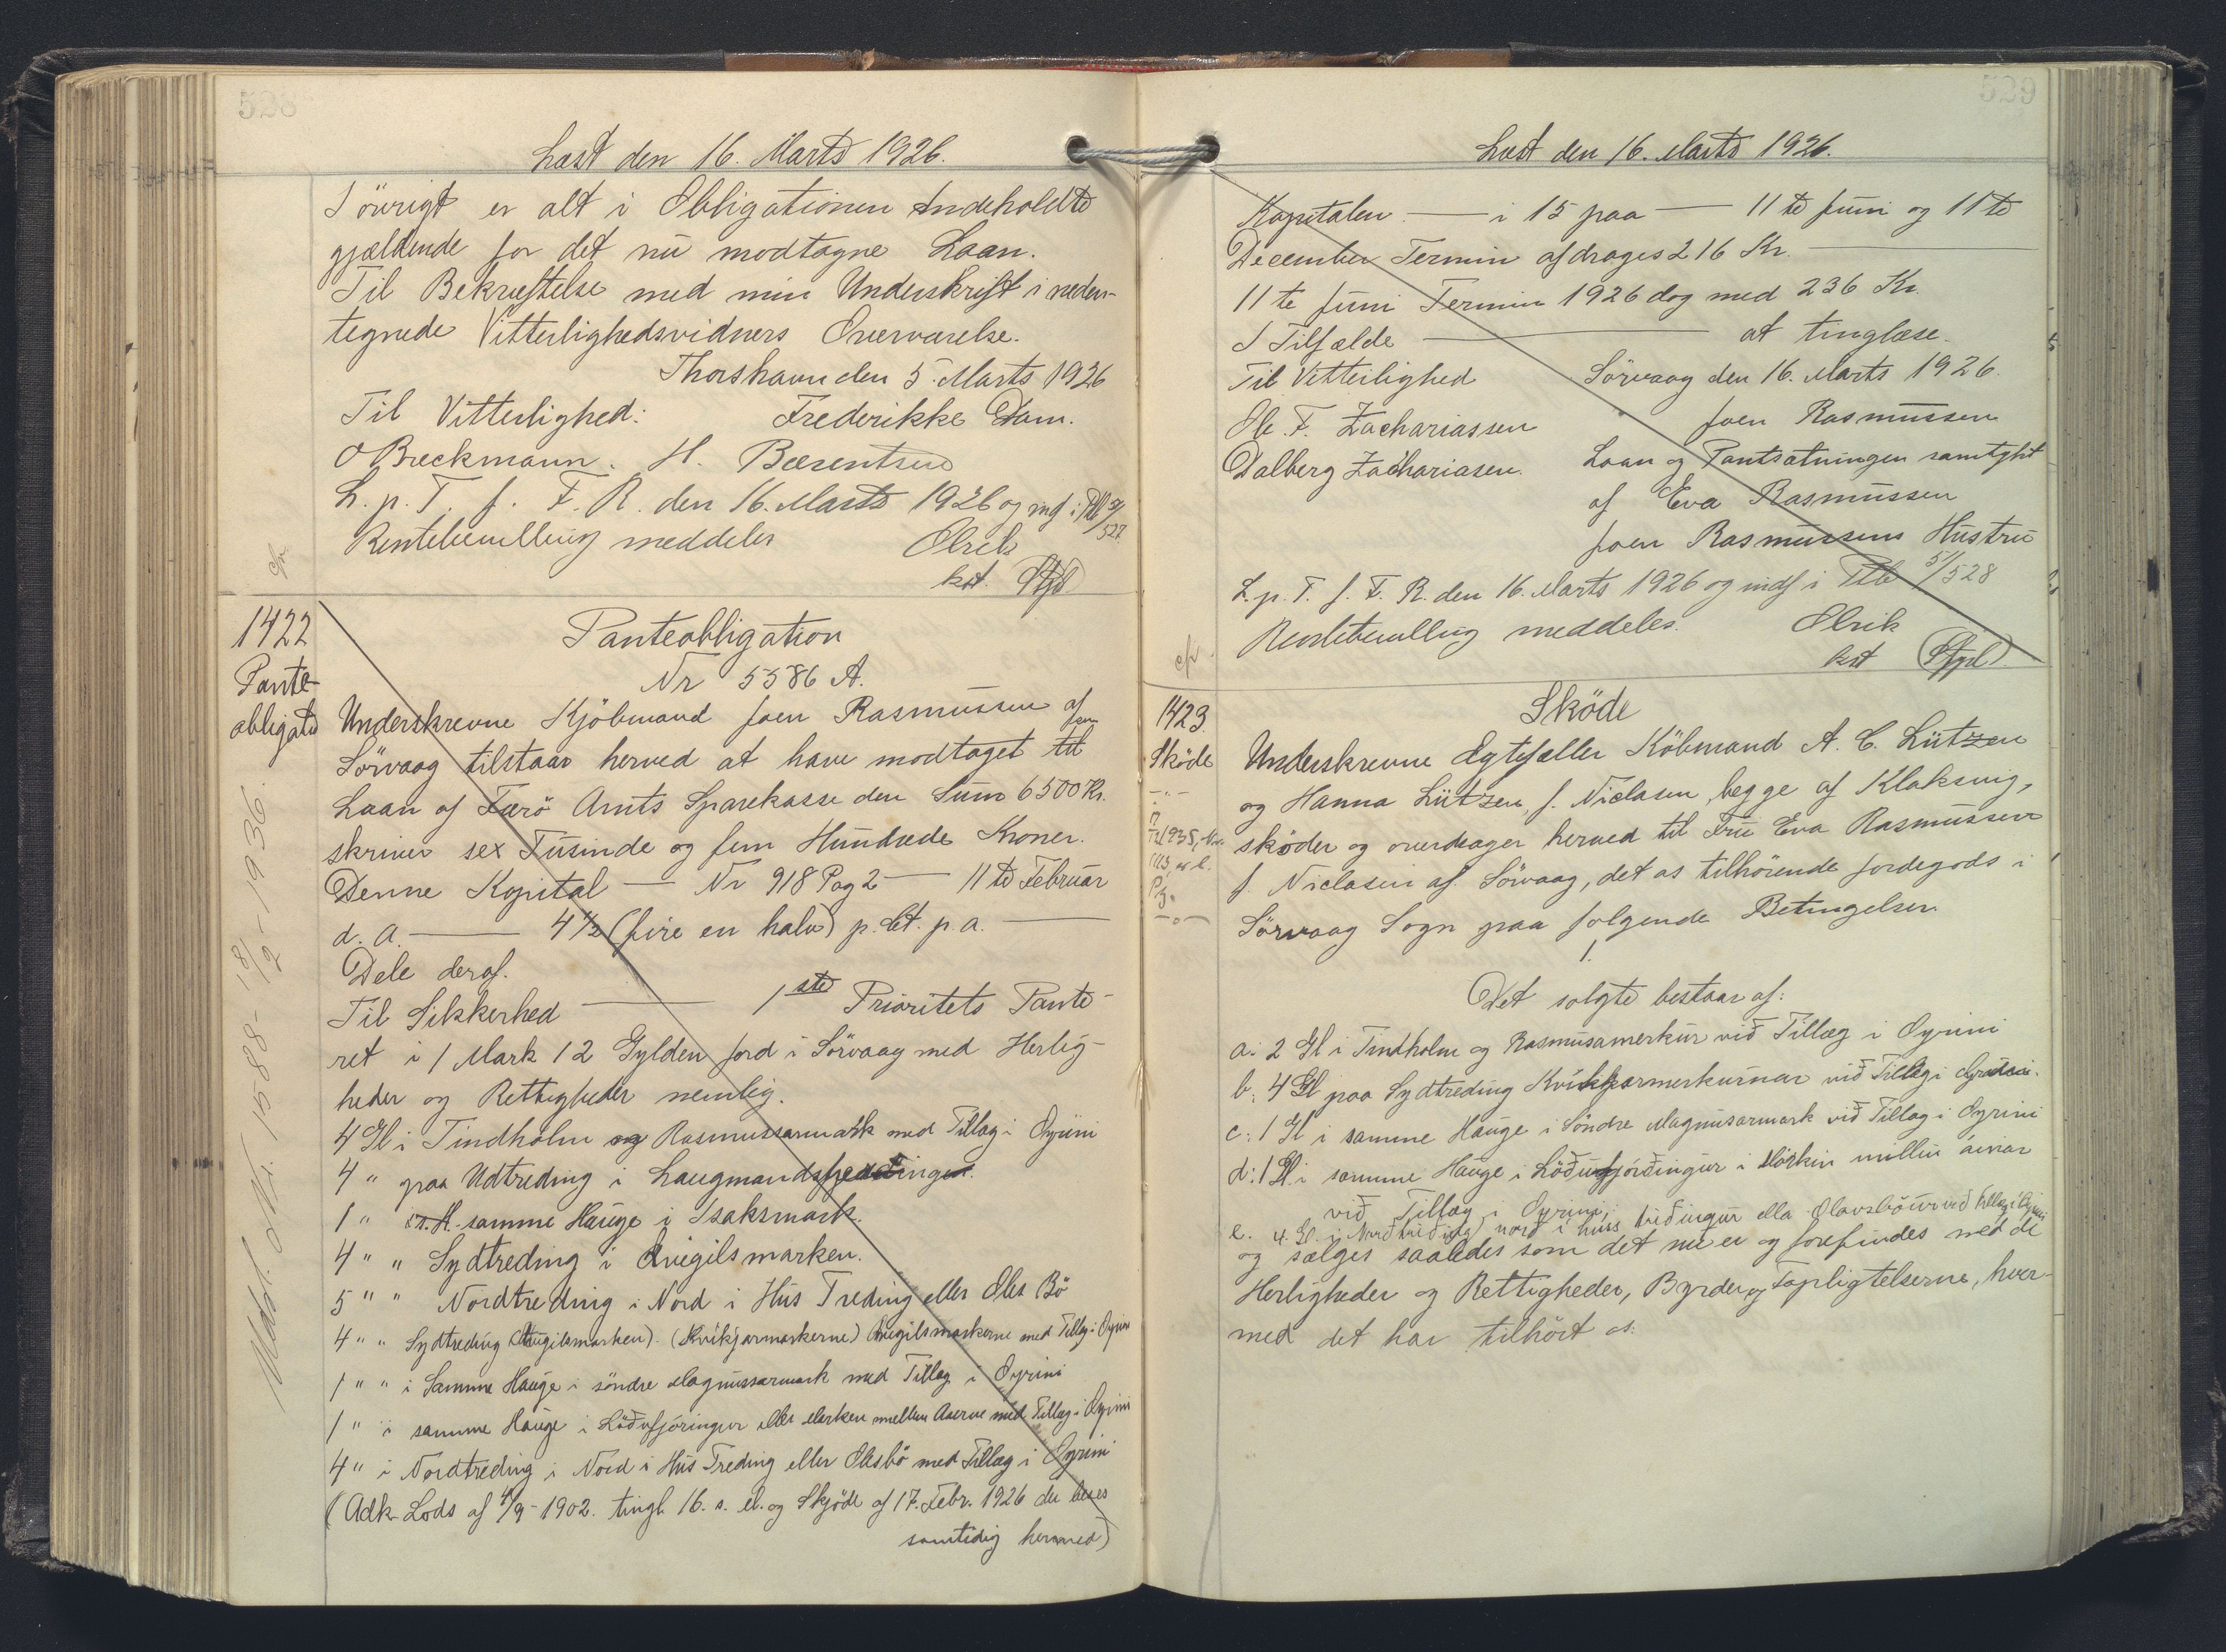 528
Læst den 16. Marts 1926.
I övrigt er alt i Obligationen Indeholdte
gjældende for det nu modtagne Laan.
Til Bekræftelse med min Underskrift i neden-
tegnede Vitterlighedsvidners Overværelse.
Thorshavn den 5. Marts 1926
Til Vitterlighed: Frederikke Dam.
O Breckmann. H. Bærentsen
L. p. T. f. F. R. den 16. Marts 1926 og indf i Ptb 51/527
Rentebevilling meddeles Olrik
kst.
1422
Pante-
obligatio
Panteobligation
Nr 5586 A.
Underskrevne Kjöbmand Joen Rasmussen af
Sörvaag tilstaar herved at have modtaget til
Laan af Færö Amts Sparekasse den Sum 6500 Kr.
skriver sex Tusinde og fem Hundrede Kroner.
Denne Kapital — Nr 918 Pag 2 — 11te Februar
d. A. — 4 1/2 (fire en halv) p. Ct. p. a. —
Dele deraf.
Til Sikkerhed — 1ste Prioritets Pante-
ret i 1 Mark 12 Gylden Jord i Sörvaag med Herlig-
heder og Rettigheder nemlig.
4 Gl i Tindholm og Rasmussarmark med Tillæg i Oyrini
4 " paa Udtreding i Laugmandsfjerdingen.
1 " samme Hauge i Isaksmark.
4 " " Sydtreding i Avegilsmarken.
5 " " Nordtreding i Nord i Hus Treding eller Oles Bö
4 " " Sydtreding (Augilsmarken). (Kvikjarmarkerne) Augilsmarkerne med Tillæg i Oyrini
1 " " i Samme Hauge i söndre Magnussarmark med Tillæg i Oyrini
1 " i samme Hauge i Löðufjóringur eller Marken mellem Aaerne med Tillæg i Oyrini
4 " i Nordtreding i Nord i Hus Treding eller Olesbö med Tillæg i Oyrini
(Adk Lods af 4/9-1902. tingl. 16. s. M. og Skjöde af 17. Febr. 1926 der læses
samtidig hermed)
Udsl. Nr. 1588- 18/2-1936.
529
Læst den 16. Marts 1926.
Kapitalen — i 15 paa — 11te Juni og 11te
December Termin afdrages 216 Kr. —
11te Juni Termin 1926 dog med 236 Kr.
I Tilfælde — at tinglæse.
Til Vitterlighed Sörvaag den 16. Marts 1926.
Ole. F. Zachariassen Joen Rasmussen
Dalberg Zachariasen. Laan og Pantsætningen samtykt
af Eva Rasmussen
Joen Rasmussens Hustru
L. p. T. f. F. R. den 16. Marts 1926 og indf i Ptb 51/528
Rentebevilling meddeles. Olrik
kst
1423.
Sköde
Sköde
Underskrevne Ægtefæller Köbmand A. C. Lützen
og Hanna Lützen, f. Niclasen, begge af Klaksvig,
sköder og overdrager herved til Fru Eva Rasmussen
f. Niclasen af Sörvaag, det os tilhörende Jordegods i
Sörvaag Sogn paa folgende Betingelser
1.
Det solgte bestaar af:
a: 2 Gl i Tindholm og Rasmusamerkur við Tillæg i Oyrini
b: 4 Gl paa Sydtreding Kvikkjarmerkurnar við Tillæg i Oyrini.
c: 1 Gl i samme Hauge i Söndre Magnusarmark við Tillæg i Oyrini
d: 1 Gl i samme Hauge i Löðufjórðingur i Mörkin millin áirnar
við Tillæg i Oyrini;
e. 4 Gl. i Norðtriðing nord i huss triðingur ella Olavsbóur við Tillæg i Oyrini
og sælges saaledes som det nu er og forefindes med de
Herligheder og Rettigheder, Byrder og Forpligtelserne, hvor-
med det har tilhört os.